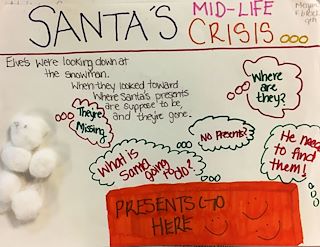 SANTA'S MID-LIFE
CRISIS ooo
9th
Elves were looking down at
the snowman.
When they looked toward
where Santa's presents
are suppose to be,
and they're gone.
Where are
they?
They're
Missing
No Presents?
What is
Santa
going to do?
He need
to find
them!
PRESENTS GO
HERE